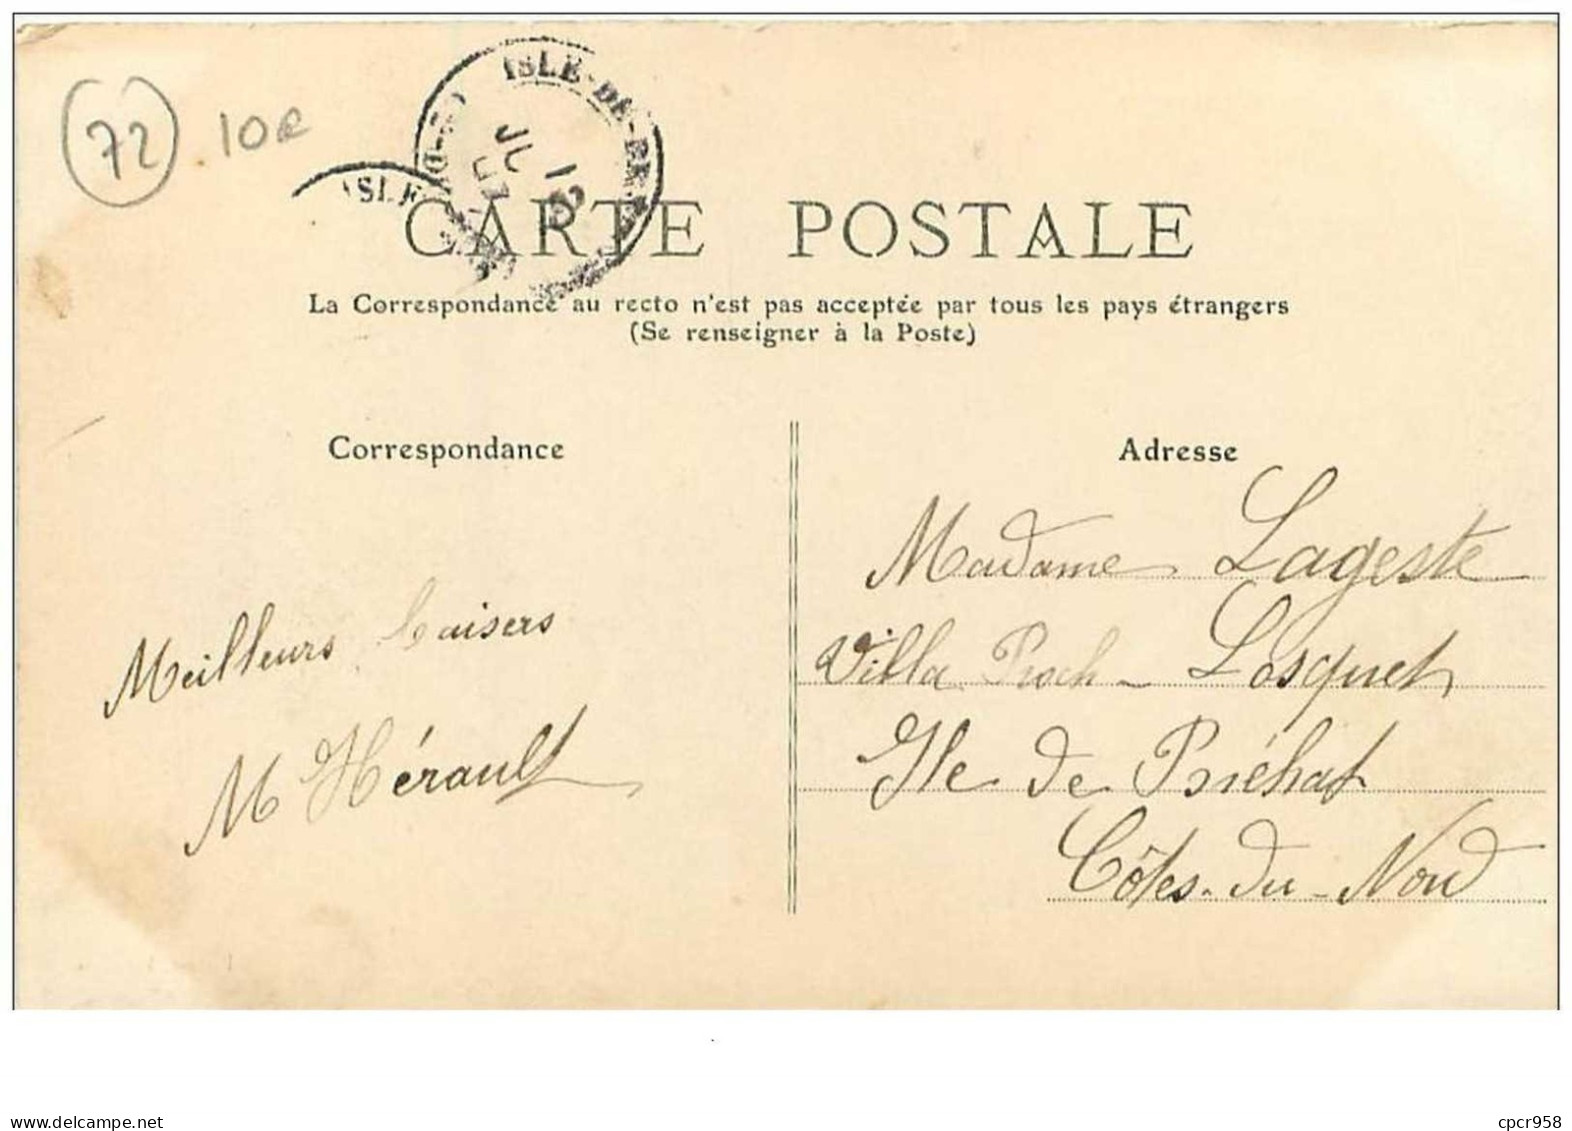 72 10e
ISLE-DE-BRE
CARTE POSTALE
La Correspondance au recto n'est pas acceptée par tous les pays étrangers
(Se renseigner à la Poste)
Correspondance
Adresse
Meilleurs baisers
M Hérault
Madame Lageste
Villa Roch-Losquet
Ile de Bréhat
Côtes-du-Nord
www.delcampe.net
cpcr958